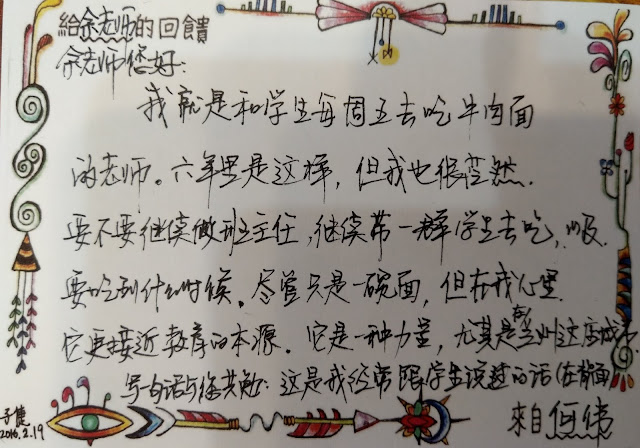 給余老师的回饋
余老师您好:
我就是和学生每周五去吃牛肉面
的老师。六年里是这样，但我也很茫然.
要不要继续做班主任,继续带一群学生去吃,
要吃到什么时候。尽管只是一碗面，但在我心里
它更接近教育的本源。它是一种力量，尤其是在兰州这座城市
写一句话与您共勉:这是我经常跟学生说过的话(在背面)
來自何伟
子健
2016.2.19